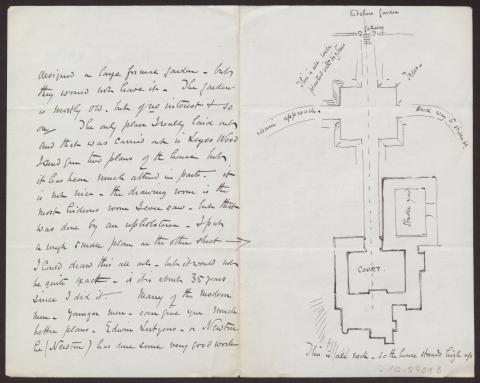 designed a large formal garden - but
they would not have it - The garden
is mostly old - but of no interest & so
on. The only place I really laid out
and that was carried out is Leyes Wood
I send you two plans of the house but
it has been much altered in parts - it
is not nice - the drawing room is the
most hideous room I ever saw - but that
was done by an upholsterer - I put
a rough smaller plan on the other sheet →
I could draw this all out - but it would not
be quite exact - it is about 35 years
since I did it - Many of the modern
men - younger men - can give you much
better plans - Edwin Lutyens - or Newton
he (Newton) has done some very good work
Kitchen Garden
Gateway
This is all rock
planted with big trees
Trees
main approach
Back way to stables
Stable yard
COURT
This is all rock - so the house stands high up